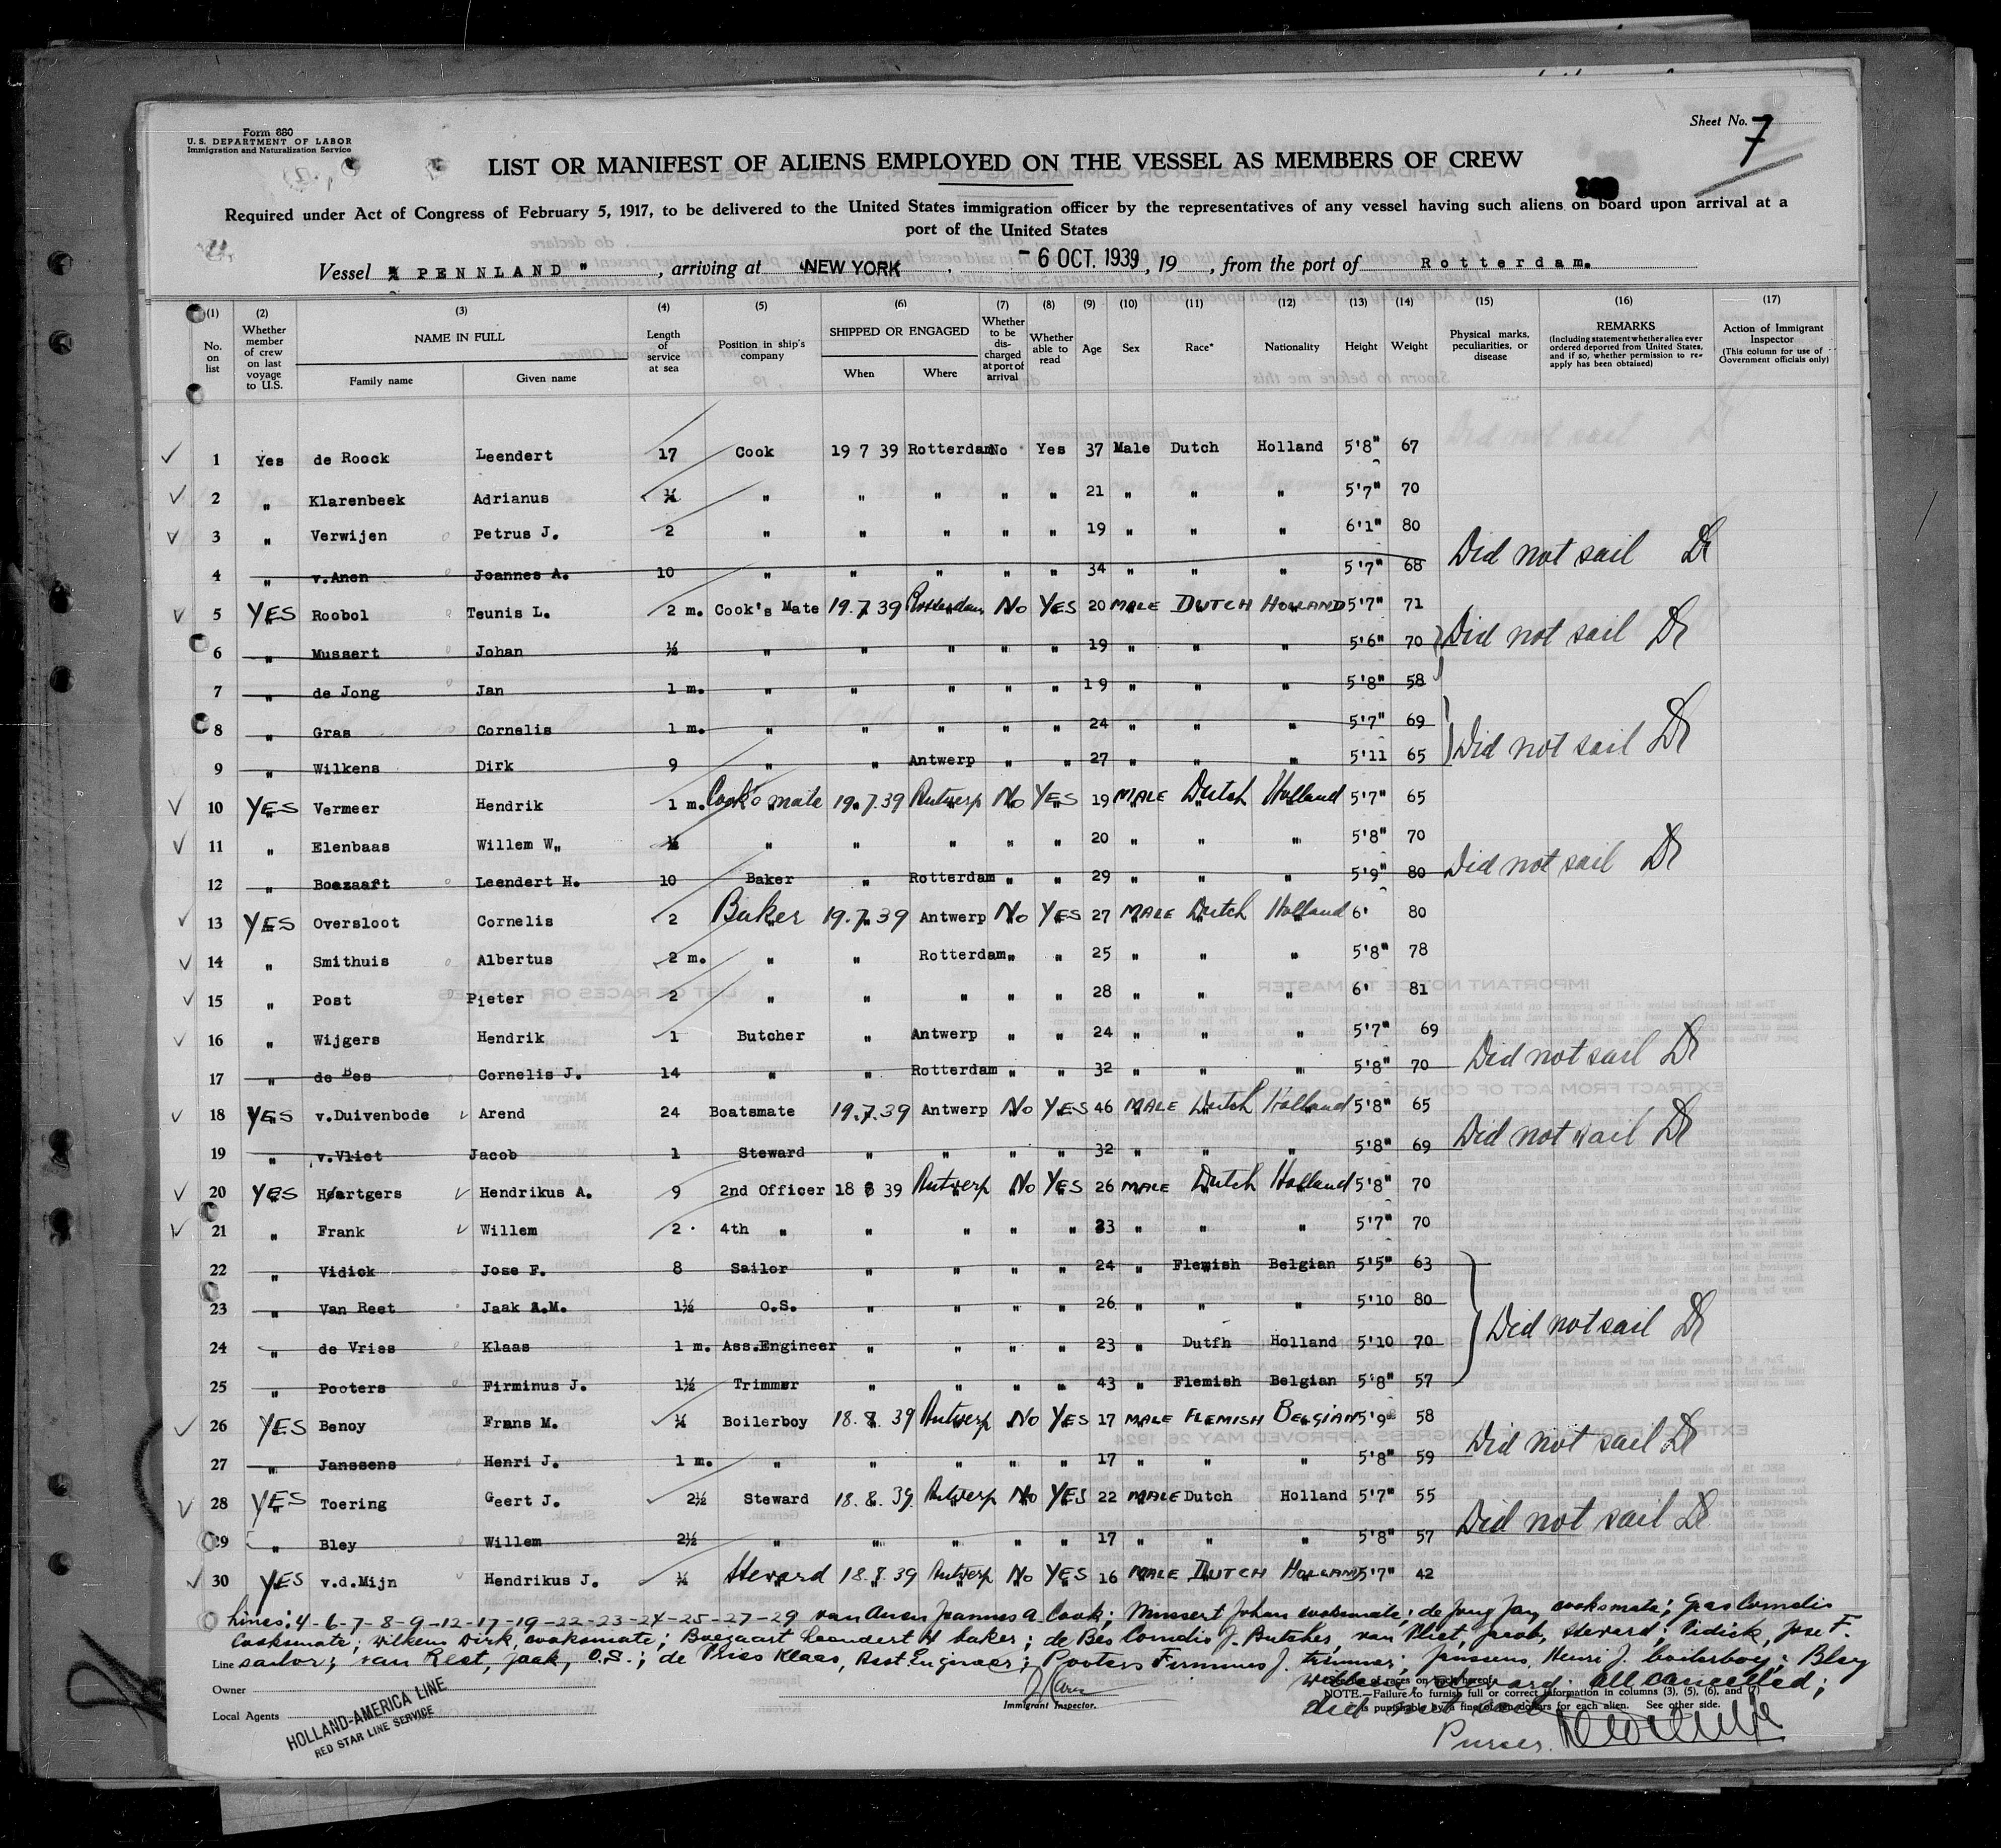 Form 680
U. S. DEPARTMENT OF LABOR
Immigration and Naturalization Service
Sheet No. 7
LIST OR MANIFEST OF ALIENS EMPLOYED ON THE VESSEL AS MEMBERS OF CREW
Required under Act of Congress of February 5, 1917, to be delivered to the United States immigration officer by the representatives of any vessel having such aliens on board upon arrival at a
port of the United States
Vessel " PENNLAND ", arriving at NEW YORK, - 6 OCT. 1939, 19 , from the port of Rotterdam.
(1) (2) (3) (4) (5) (6) (7) (8) (9) (10) (11) (12) (13) (14) (15) (16) (17)
No. on list
Whether member of crew on last voyage to U.S.
NAME IN FULL
Family name Given name
Length of service at sea
Position in ship's company
SHIPPED OR ENGAGED
When Where
Whether to be discharged at port of arrival
Whether able to read
Age
Sex
Race*
Nationality
Height
Weight
Physical marks, peculiarities, or disease
REMARKS
(Including statement whether alien ever ordered deported from United States, and if so, whether permission to reapply has been obtained)
Action of Immigrant Inspector
(This column for use of Government officials only)
1 Yes de Roock Leendert 17 Cook 19 7 39 Rotterdam No Yes 37 Male Dutch Holland 5'8" 67
2 " Klarenbeek Adrianus " " " " " 21 " " " 5'7" 70
3 " Verwijen Petrus J. 2 " " " " " 19 " " " 6'1" 80
4 " v.Anen Joannes A. 10 " " " " " 34 " " " 5'7" 68 Did not sail
5 YES Roobol Teunis L. 2 m. Cook's Mate 19.7 39 Rotterdam No YES 20 MALE DUTCH HOLLAND 5'7" 71
6 " Mussert Johan ½ " " " " " 19 " " " 5'6" 70 Did not sail
7 " de Jong Jan 1 m. " " " " " 19 " " " 5'8" 58
8 " Gras Cornelis 1 m. " " " " " 24 " " " 5'7" 69 Did not sail
9 " Wilkens Dirk 9 " " Antwerp " " 27 " " " 5'11 65
10 YES Vermeer Hendrik 1 m. Cook's mate 19.7.39 Antwerp No YES 19 MALE Dutch Holland 5'7" 65
11 " Elenbaas Willem W" ½ " " " " " 20 " " " 5'8" 70
12 " Boezaaft Leendert H. 10 Baker " Rotterdam " " 29 " " " 5'9" 80 Did not sail
13 YES Oversloot Cornelis 2 Baker 19.7.39 Antwerp No YES 27 MALE Dutch Holland 6' 80
14 " Smithuis Albertus 2 m. " " Rotterdam " " 25 " " " 5'8" 78
15 " Post Pieter 2 " " " " " 28 " " " 6' 81
16 " Wijgers Hendrik 1 Butcher " Antwerp " " 24 " " " 5'7" 69
17 " de Bes Cornelis J. 14 " " Rotterdam " " 32 " " " 5'8" 70 Did not sail
18 YES v.Duivenbode Arend 24 Boatsmate 19.7.39 Antwerp No YES 46 MALE Dutch Holland 5'8" 65
19 " v.Vliet Jacob 1 Steward " " " " 32 " " " 5'8" 69 Did not sail
20 YES Heartgers Hendrikus A. 9 2nd Officer 18 8 39 Antwerp No YES 26 MALE Dutch Holland 5'8" 70
21 " Frank Willem 2 4th " " " " " 23 " " " 5'7" 70
22 " Vidick Jose F. 8 Sailor " " " " 24 " Flemish Belgian 5'5" 63
23 " Van Reet Jaak A.M. 1½ O.S. " " " " 26 " " " 5'10 80
24 " de Vries Klaas 1 m. Ass.Engineer " " " " 23 " Dutfh Holland 5'10 70 Did not sail
25 " Pooters Firminus J. 1½ Trimmer " " " " 43 " Flemish Belgian 5'8" 57
26 YES Benoy Frans M. Boilerboy 18.8.39 Antwerp No YES 17 MALE FLEMISH BELGIAN 5'9" 58
27 " Janssens Henri J. 1 m. " " " " " 17 " " " 5'8" 59 Did not sail
28 YES Toering Geert J. 2½ Steward 18.8.39 Antwerp No YES 22 MALE Dutch Holland 5'7" 55
29 " Bley Willem 2½ " " " " " 17 " " " 5'8" 57 Did not sail
30 YES v.d.Mijn Hendrikus J. Steward 18.8.39 Antwerp No YES 16 MALE DUTCH HOLLAND 5'7" 42
Lines: 4-6-7-8-9-12-17-19-22-23-24-25-27-29 van Anen Joannes A. Cook; Mussert Johan cooksmate; de Jong Jan, cooksmate; Gras Cornelis
Cooksmate; Wilkens Dirk, cooksmate; Boezaart Leendert H baker; de Bes Cornelis J. Butcher, van Vliet, Jacob, Steward; Vidick, Jose F.
Line sailor; van Reet, Jaak, O.S.; de Vries Klaas, Asst. Engineer; Pooters Firminus J. trimmer; Janssens, Henri J. boilerboy; Bley
Owner Willem, steward: all cancelled;
Local Agents did not sail
HOLLAND-AMERICA LINE
RED STAR LINE SERVICE
Immigrant Inspector.
NOTE.—Failure to furnish full or correct information in columns (3), (5), (6), and (7)
is punishable by a fine of ten dollars for each alien. See other side.
Purser.